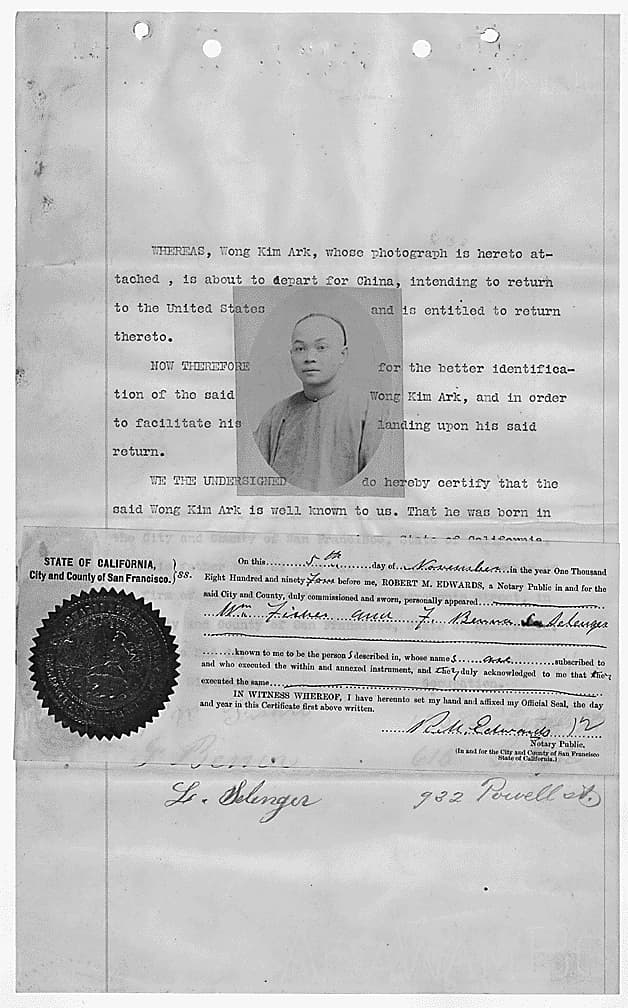 WHEREAS, Wong Kim Ark, whose photograph is hereto at-
tached , is about to depart for China, intending to return
to the United States and is entitled to return
thereto.
NOW THEREFORE for the better identifica-
tion of the said Wong Kim Ark, and in order
to facilitate his landing upon his said
return.
WE THE UNDERSIGNED do hereby certify that the
said Wong Kim Ark is well known to us. That he was born in
the City and County of San Francisco, State of California,
STATE OF CALIFORNIA,
City and County of San Francisco. } ss.
On this 5th day of November in the year One Thousand
Eight Hundred and ninety Four before me, ROBERT M. EDWARDS, a Notary Public in and for the
said City and County, duly commissioned and sworn, personally appeared
Wm Fisher and F. Benna L. Selenger
known to me to be the person s described in, whose name s are subscribed to
and who executed the within and annexed instrument, and they duly acknowledged to me that they
executed the same.
IN WITNESS WHEREOF, I have hereunto set my hand and affixed my Official Seal, the day
and year in this Certificate first above written.
R. M. Edwards
Notary Public,
(In and for the City and County of San Francisco
State of California.)
L. Selenger 932 Powell st.